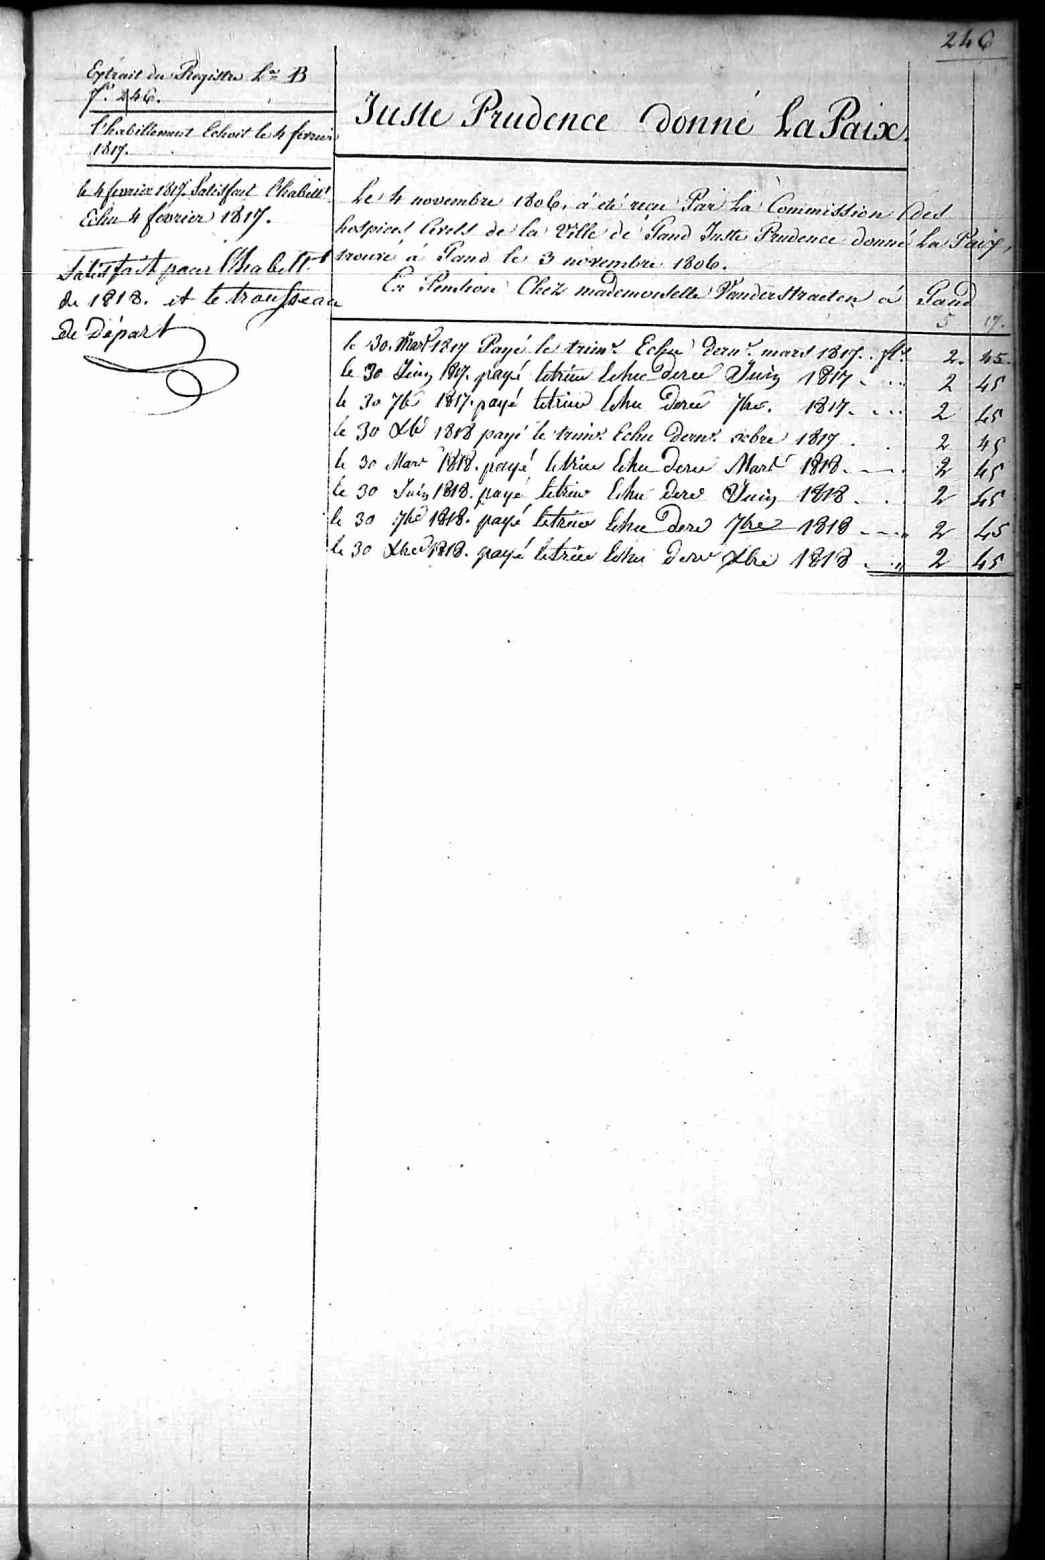 246
Extrait du Registre L.re B
f.o 246.
L'habillement Echoit le 4 fevrier
1817.
le 4 fevrier 1817. Satisfait l'habill.t
Echu 4 fevrier 1817.
Satisfait pour l'habill.t
de 1818. et le trousseau
de Départ
Juste Prudence donné La Paix.
Le 4 novembre 1806. à été recu Par La Commission des
hospices Civils de la Ville de Gand Juste Prudence donné La Paix,
trouvé à Gand le 3 novembre 1806.
En Pension Chez mademoiselle Vanderstraeten à Gand
le 30. Mars 1817 Payé le trim.e Echu dern.r mars 1817. . fl.s 2. 45.
le 30 Juin 1817. payé letrim Echu derer Juin 1817 . . . 2 45
le 30 7bre 1817. payé letrim Echu derer 7bre. 1817. . . . 2 45
le 30 Xbre 1818 payé le trim.e Echu dern.r xbre 1817 . . 2 45
le 30 Mars 1818. payé letrim Echu derer Mars 1818. . . 2 45
le 30 Juin 1818. payé letrim Echu derer Juin 1818 . . 2 45
le 30 7bre 1818. payé letrim Echu derer 7bre 1818 . . . 2 45
le 30 Xbre 1818. payé letrim Echu derer Xbre 1818 . . 2 45